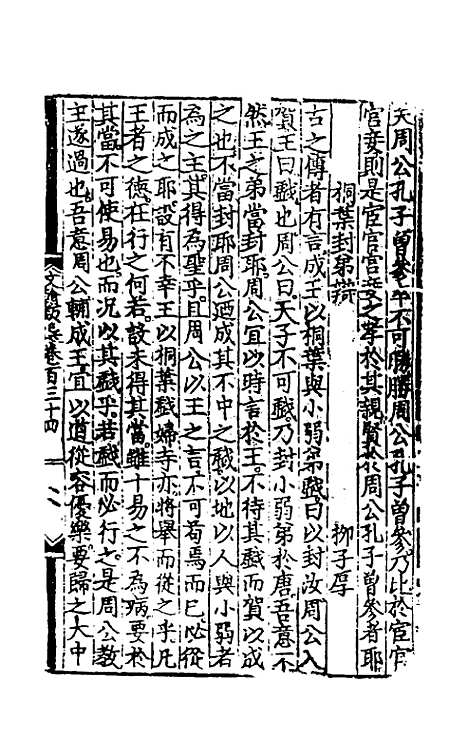 夫周公孔子曾參卒不可勝勝周公孔子曾參乃比於宦官
宮妾則是宦官宮妾之孝於其親賢於周公孔子曾參者耶
桐葉封弟辯 柳子厚
古之傳者有言成王以桐葉與小弱弟戲曰以封汝周公入
賀王曰戲也周公曰天子不可戲乃封小弱弟於唐吾意不
然王之弟當封耶周公宜以時言於王不待其戲而賀以成
之也不當封耶周公廼成其不中之戲以地以人與小弱者
為之主其得為聖乎且周公以王之言不可苟焉而已必從
而成之耶設有不幸王以桐葉戲婦寺亦將舉而從之乎凡
王者之德在行之何若設未得其當雖十易之不為病要於
其當不可使易也而况以其戲乎若戲而必行之是周公教
主遂過也吾意周公輔成王宜以道從容優樂要歸之大中
卷百三十四